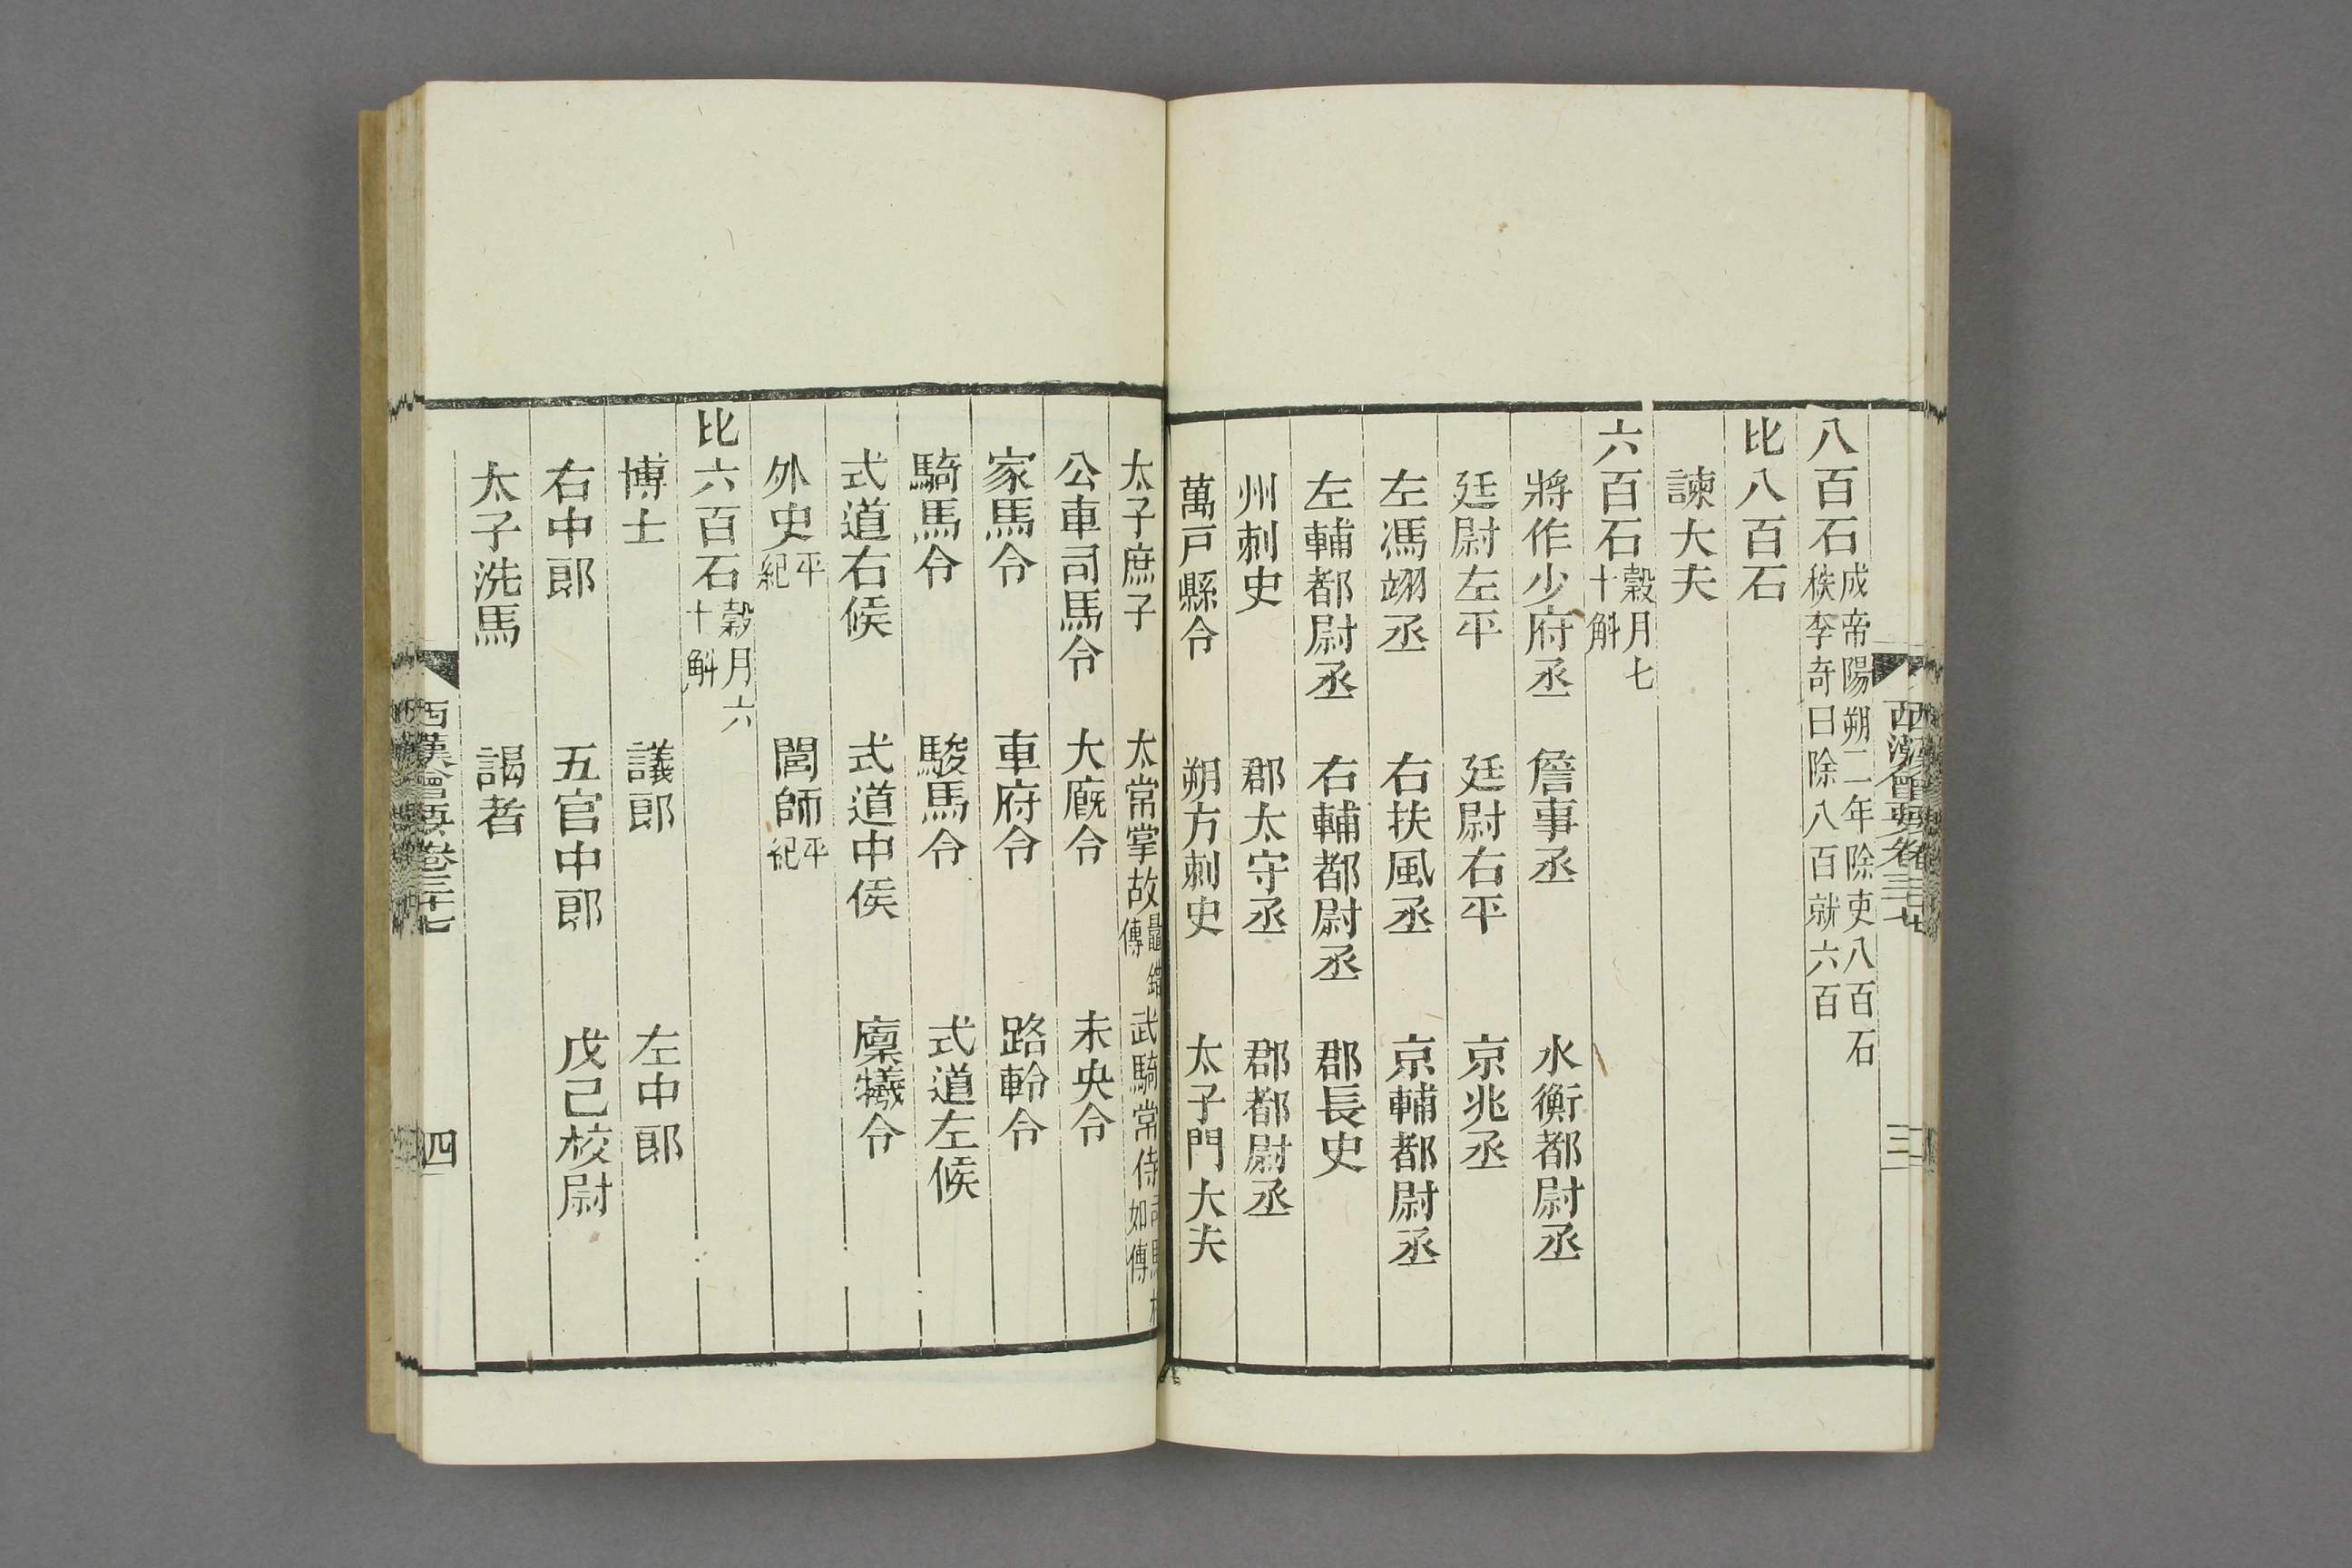 八百石成帝陽朔二年除吏八百石
秩李奇曰除八百就六百
比八百石
諫大夫
六百石穀月七
十斛
將作少府丞 詹事丞 水衡都尉丞
廷尉左平 廷尉右平 京兆丞
左馮翊丞 右扶風丞 京輔都尉丞
左輔都尉丞 右輔都尉丞 郡長史
州刺史 郡太守丞 郡都尉丞
萬戸縣令 朔方刺史 太子門大夫
太子庶子 太常掌故鼂錯
傳 武騎常侍司馬相
如傳
公車司馬令 大廄令 未央令
家馬令 車府令 路軨令
騎馬令 駿馬令 式道左候
式道右候 式道中侯 廩犧令
外史平
紀 閭師平
紀
比六百石穀月六
十斛
博士 議郎 左中郎
右中郎 五官中郎 戊己校尉
太子洗馬 謁者
西漢會要卷三十七
四
西漢會要卷三十七
三